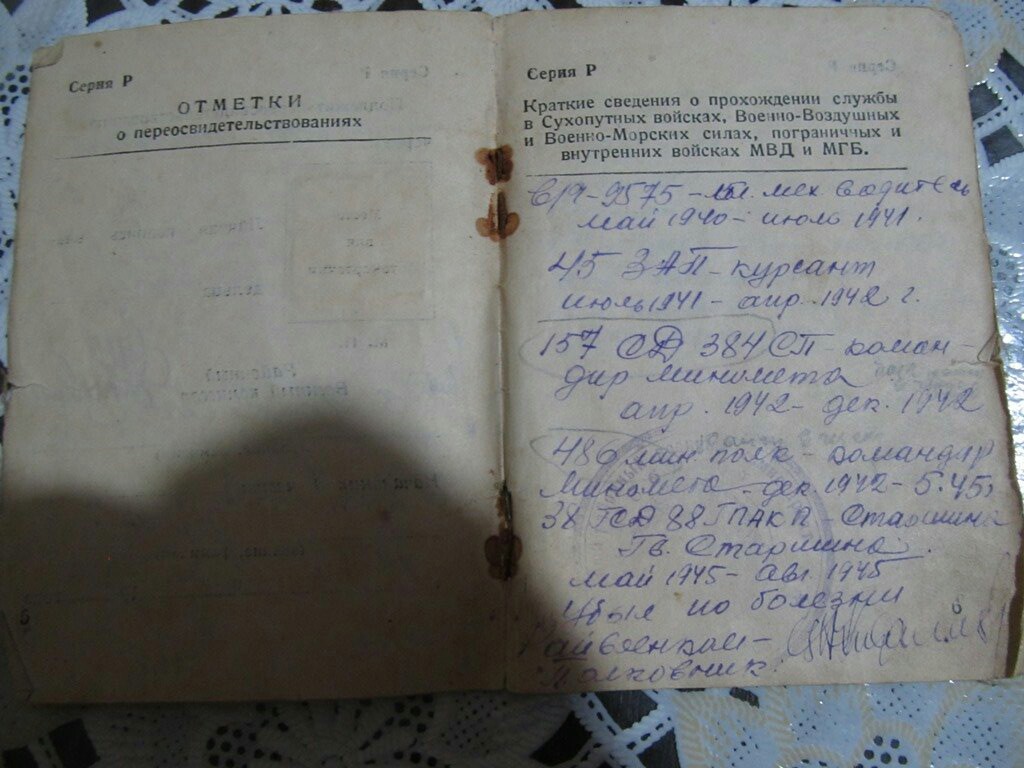 Серия Р
ОТМЕТКИ
о переосвидетельствованиях
6
Серия Р
Краткие сведения о прохождении службы
в Сухопутных войсках, Военно-Воздушных
и Военно-Морских силах, пограничных и
внутренних войсках МВД и МГБ.
в/ч-9575 - мех водитель
май 1940 - июль 1941.
45 ЗАП - курсант
июль 1941 - апр. 1942 г.
157 СД 384 СП - коман-
дир миномета
апр. 1942 - дек. 1942
486 мин полк - командир
миномета - дек 1942 - 5.45г
38 ГСД 88 ГПАКП - Старшина
Гв. Старшина.
май 1945 - авг. 1945
Убыл по болезни
Райвоенком -
Полковник